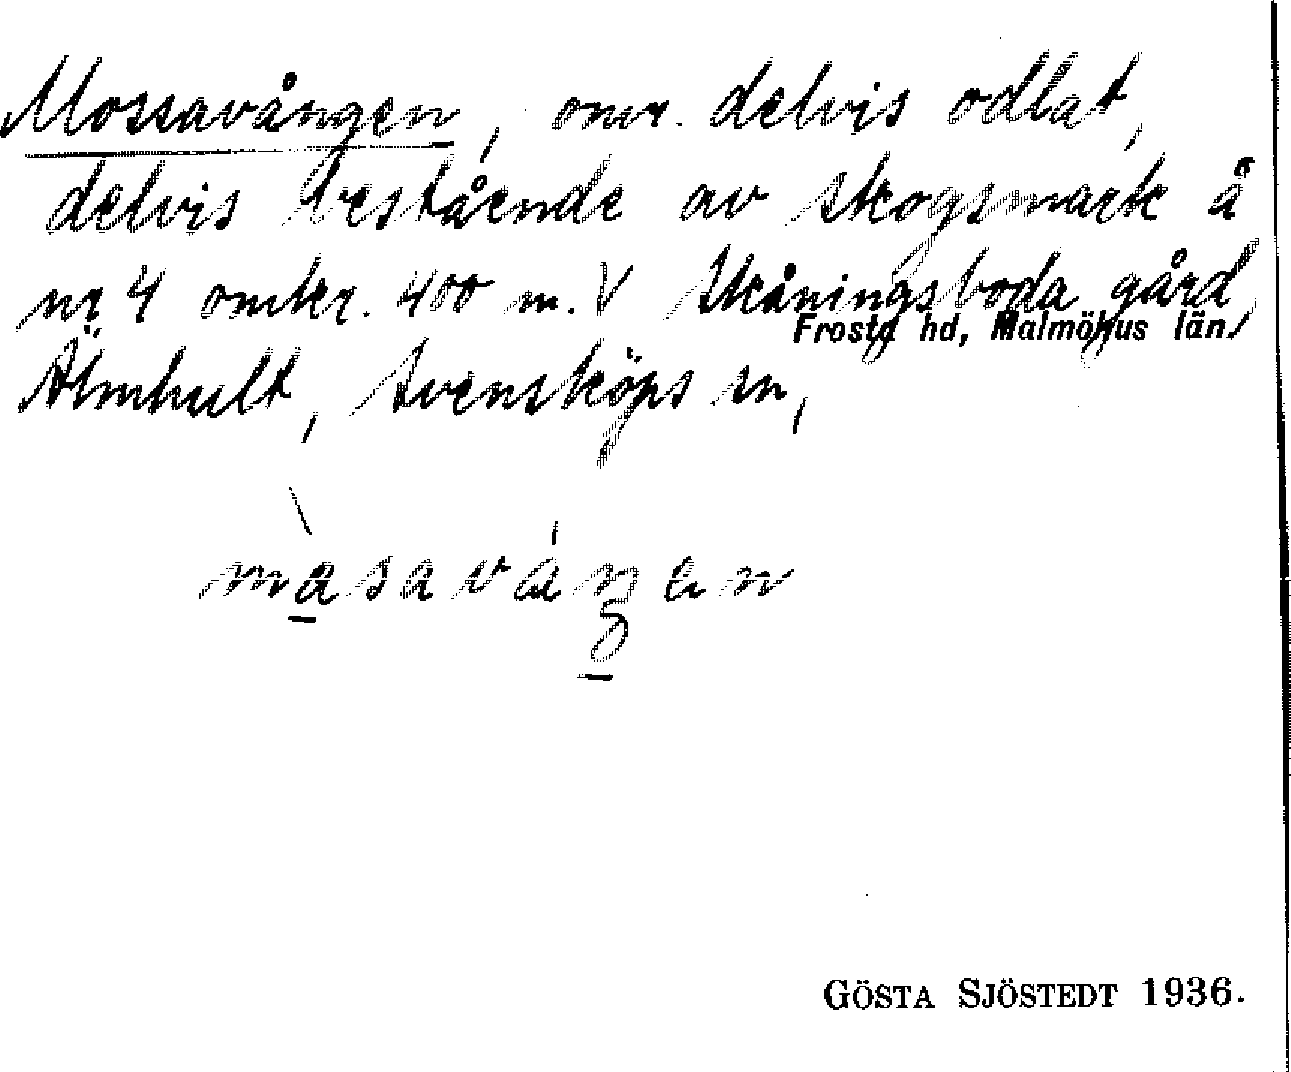 Mossavången, omr. delvis odlat,
delvis bestående av skogsmark å
nr 4 omkr. 400 m. V Skåningsboda gård,
Frosta hd, Malmöhus län
Älmhult, Svensköps sn,
GÖSTA SJÖSTEDT 1936.